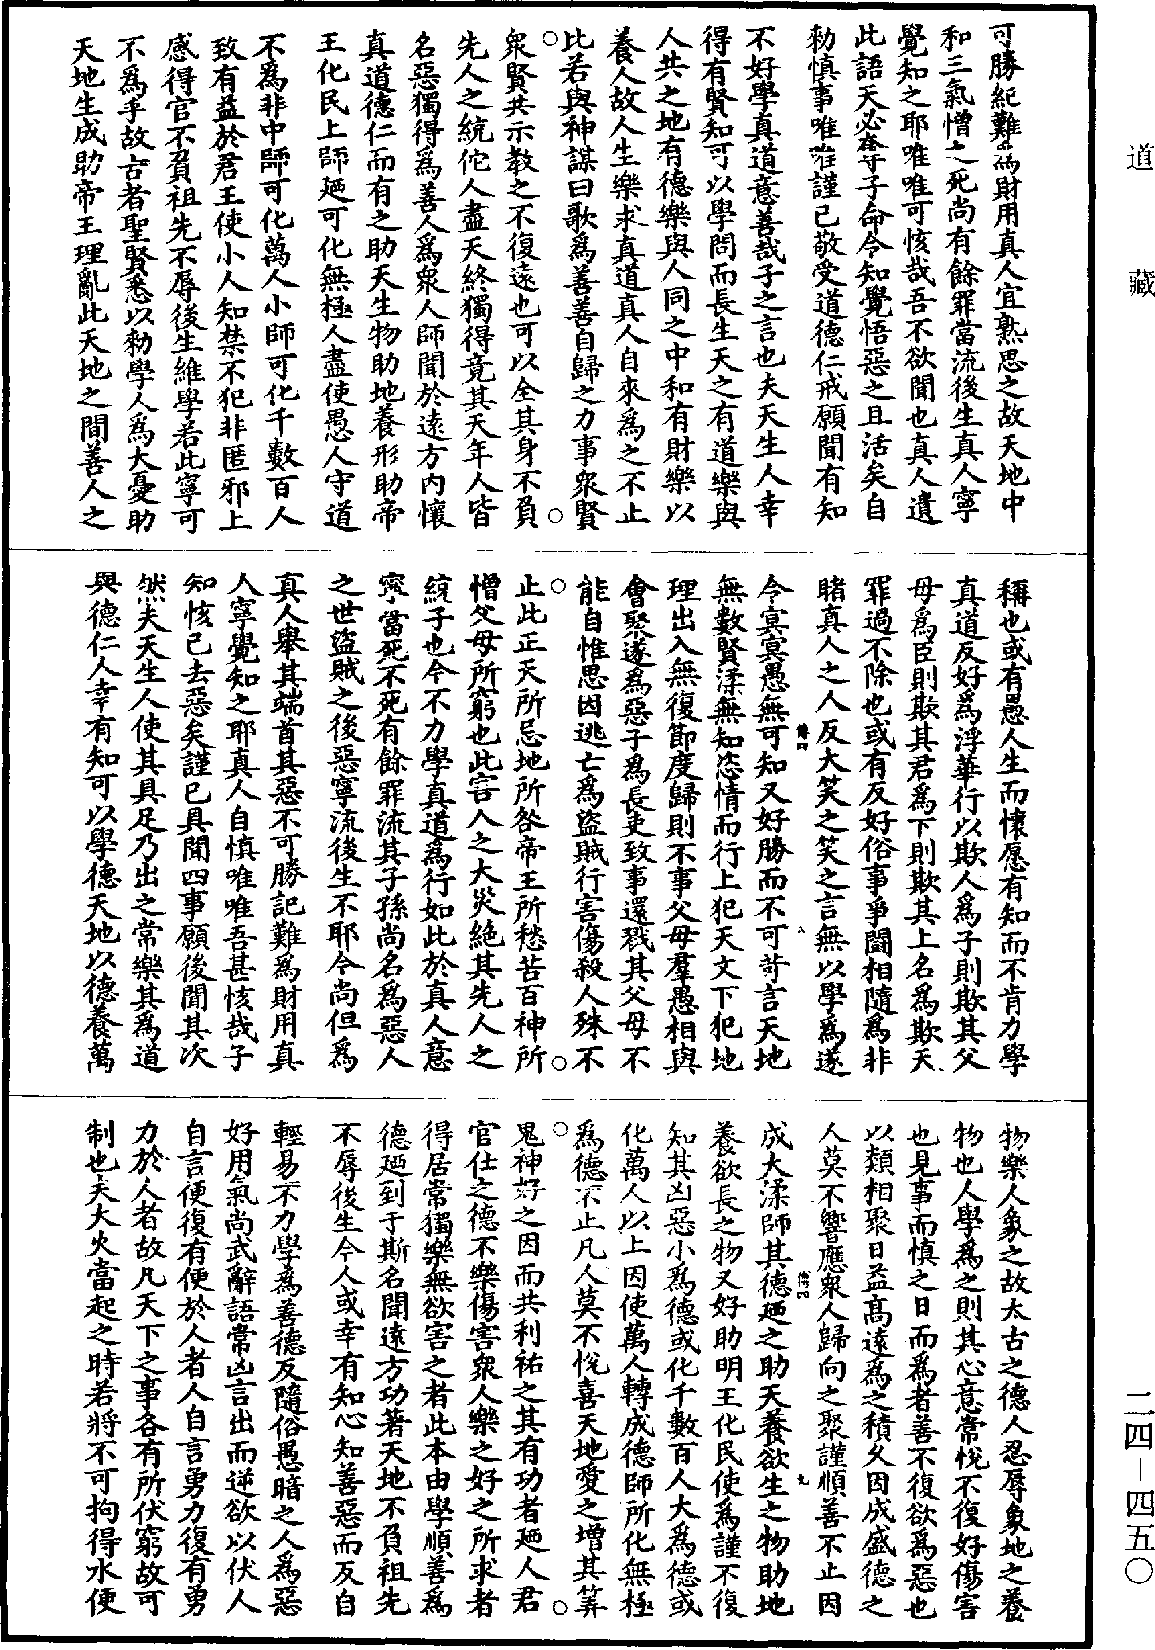 道藏
二四－四五〇
可勝紀難爲財用真人宜熟思之故天地中
和三氣憎之死尚有餘罪當流後生真人寧
覺知之耶唯唯可㤥哉吾不欲聞也真人遺
此語天必奪子命今知覺悟惡之且活矣自
勑慎事唯唯謹已敬受道德仁戒願聞有知
不好學真道意善哉子之言也夫天生人幸
得有賢知可以學問而長生天之有道樂與
人共之地有德樂與人同之中和有財樂以
養人故人生樂求真道真人自來爲之不止
比若與神謀日歌爲善善自歸之力事衆賢
衆賢共示教之不復遠也可以全其身不負
先人之統佗人盡夭終獨得竟其天年人皆
名惡獨得爲善人爲衆人師聞於遠方內懷
真道德仁而有之助天生物助地養形助帝
王化民上師廼可化無極人盡使愚人守道
不爲非中師可化萬人小師可化千數百人
致有益於君王使小人知禁不犯非匿邪上
感得官不負祖先不辱後生維學若此寧可
不爲乎故古者聖賢悉以勑學人爲大憂助
天地生成助帝王理亂此天地之間善人之
稱也或有愚人生而懷愿有知而不肯力學
真道反好爲浮華行以欺人爲子則欺其父
母爲臣則欺其君爲下則欺其上名爲欺天
罪過不除也或有反好俗事爭鬬相隨爲非
睹真人之人反大笑之笑之言無以學爲遂
令冥冥愚無可知又好勝而不可苛言天地
無數賢渘無知恣情而行上犯天文下犯地
理出入無復節度歸則不事父母羣愚相與
會聚遂爲惡子爲長吏致事還戮其父母不
能自惟思因逃亡爲盜賊行害傷殺人殊不
止此正天所忌地所咎帝王所愁苦百神所
憎父母所窮也此害人之大災絕其先人之
統子也今不力學真道爲行如此於真人意
寧當死不死有餘罪流其子孫尚名爲惡人
之世盜賊之後惡寧流後生不耶今尚但爲
真人舉其端首其惡不可勝記難爲財用真
人寧覺知之耶真人自慎唯唯吾甚㤥哉子
知㤥已去惡矣謹已具聞四事願後聞其次
然夫天生人使其具足乃出之常樂其爲道
與德仁人幸有知可以學德天地以德養萬
物樂人象之故太古之德人忍辱象地之養
物也人學爲之則其心意常悅不復好傷害
也見事而慎之日而爲者善不復欲爲惡也
以類相聚日益高遠爲之積久因成盛德之
人莫不響應衆人歸向之聚謹順善不止因
成大渘師其德廼之助天養欲生之物助地
養欲長之物又好助明王化民使爲謹不復
知其凶惡小爲德或化千數百人大爲德或
化萬人以上因使萬人轉成德師所化無極
爲德不止凡人莫不悅喜天地愛之增其筭
鬼神好之因而共利祐之其有功者廼人君
官仕之德不樂傷害衆人樂之好之所求者
得居常獨樂無欲害之者此本由學順善爲
德廼到于斯名聞遠方功著天地不負祖先
不辱後生今人或幸有知心知善惡而反自
輕易不力學爲善德反隨俗愚暗之人爲惡
好用氣尚武辭語常凶言出而逆欲以伏人
自言便復有便於人者人自言勇力復有勇
力於人者故凡天下之事各有所伏窮故可
制也夫大火當起之時若將不可拘得水便